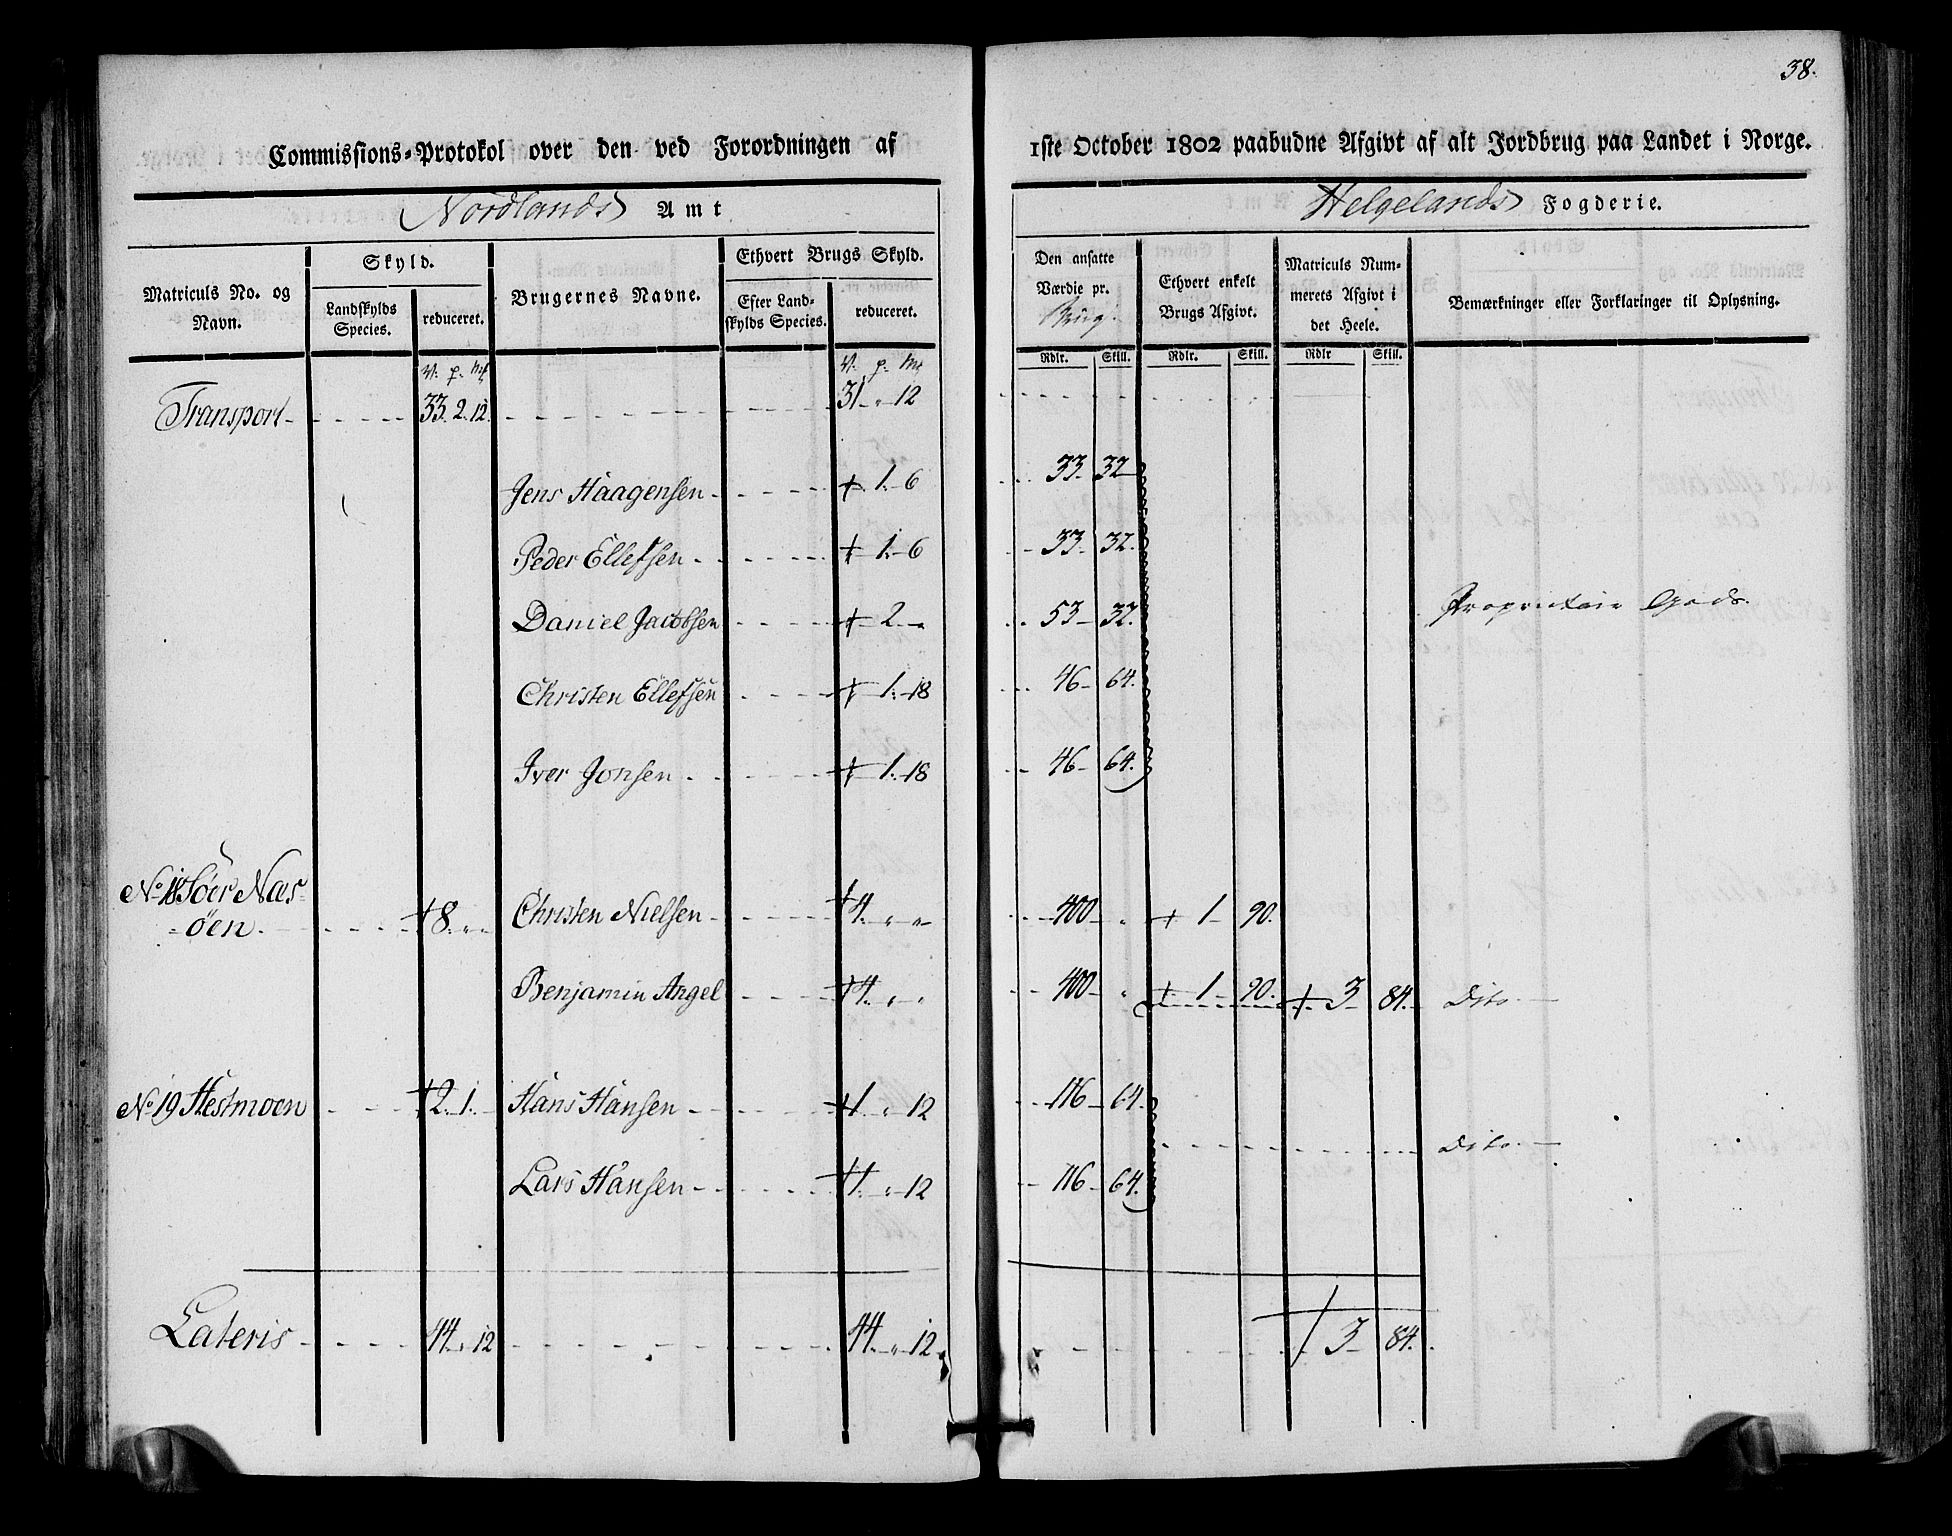 38.
Commissions-Protokol over den ved Forordningen af
1ste October 1802 paabudne Afgivt af alt Jordbrug paa Landet i Norge.
Nordlands Amt
Helgelands Fogderie.
Matriculs No. og Navn.
Skyld.
Landskylds Species.
reduceret.
Brugernes Navne.
Ethvert Brugs Skyld.
Efter Landskylds Species.
reduceret.
Den ansatte Værdie pr. Brug.
Ethvert enkelt Brugs Afgivt.
Matriculs Nummerets Afgivt i det Heele.
Bemærkninger eller Forklaringer til Oplysning.
Rdlr. Skill. Rdlr. Skill. Rdlr Skill.
V. p. mk V. p. mk
Transport 33. 2. 12. 31 " 12
Jens Haagensen + 1. 6 33. 32
Peder Ellefsen + 1. 6 33. 32.
Daniel Jacobsen + 2 " 53 32. Proprietair Gods.
Christen Ellefsen + 1. 18 46 64.
Iver Jonsen + 1. 18 46 64.
No 18 Söer Næs-
=öen + 8. " " Christen Nielsen + 4. " " 400 " + 1 90.
Benjamin Angel + 4. " " 400 " + 1 90. + 3 84. Dito
No 19 Hestmoen + 2. 1. Hans Hansen + 1 " 12 116 64.
Dito
Lars Hansen + 1 " 12 116 64.
Lateris 44. " 12 44 " 12 + 3 84.